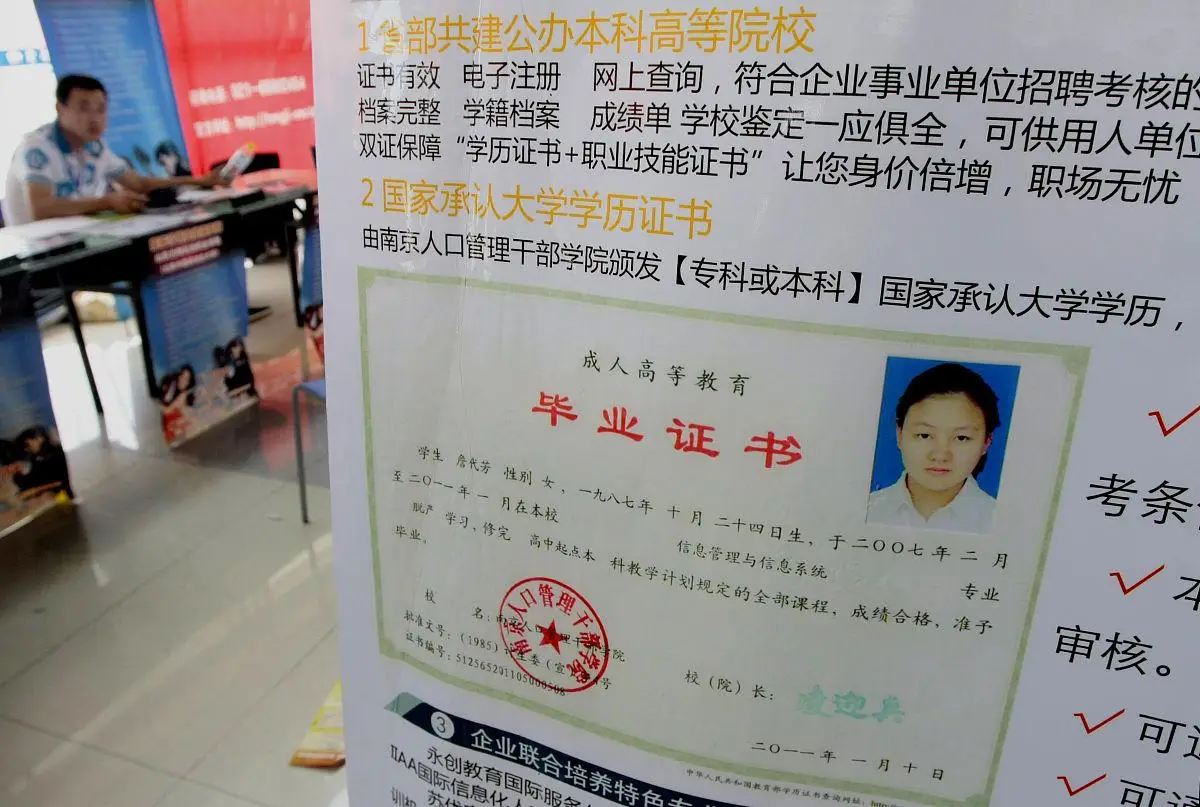 1 省部共建公办本科高等院校
证书有效 电子注册 网上查询，符合企业事业单位招聘考核的
档案完整 学籍档案 成绩单 学校鉴定一应俱全，可供用人单位
双证保障“学历证书+职业技能证书”让您身价倍增，职场无忧
2 国家承认大学学历证书
由南京人口管理干部学院颁发【专科或本科】国家承认大学学历，
成人高等教育
毕业证书
学生 詹代芳 性别 女，一九八七年 十 月 二十四日生，于二〇〇七年 二 月
至二〇一一年 一 月在本校 信息管理与信息系统 专业
脱产 学习，修完 高中起点本 科教学计划规定的全部课程，成绩合格，准予
毕业。
校 名：南京人口管理干部学院
批准文号：（1985）计生委（宣）字 号
证书编号：512565201105000508
南京人口管理干部学院
校（院）长：
二〇一一年 一 月 十 日
中华人民共和国教育部学历证书查询网址：http
3 企业联合培养特色专业
永创教育国际服务
IIAA国际信息化人
训机
考条
本
审核。
可
可